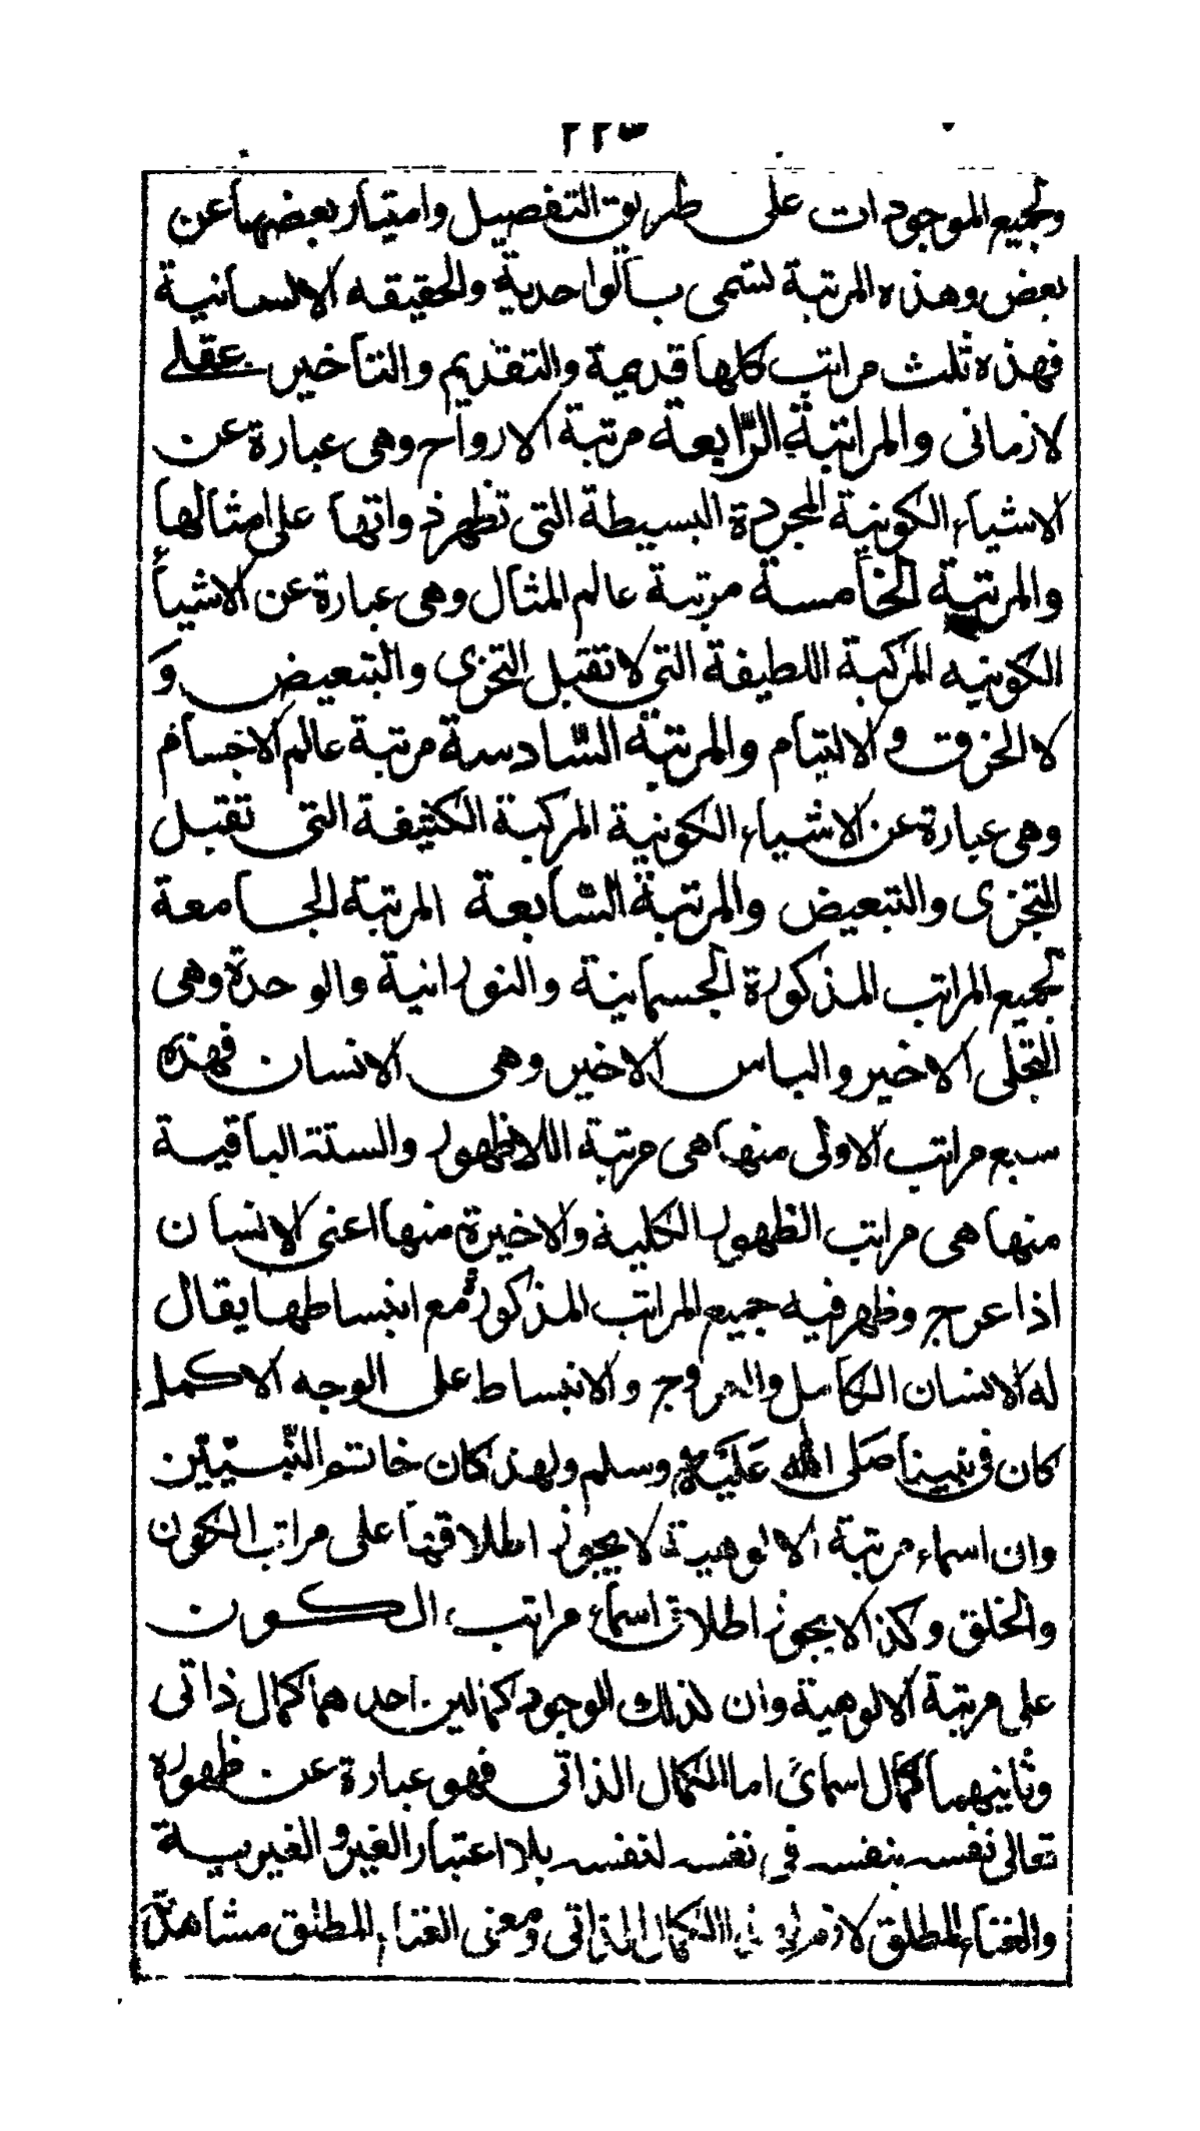 ٢٢٣
ولجميع الموجودات على طريق التفصيل وامتياز بعضها عن
بعض وهذه المرتبة تسمى بالواحدية والحقيقه الانسانية
فهذه ثلث مراتب كلها قديمة والتقديم والتأخير عقلى
لازمانى والمراتبة الرّابعة مرتبة الارواح وهى عبارة عن
الاشياء الكونية المجردة البسيطة التى تظهر ذواتها على امثالها
والمرتبة الخامسة مرتبة عالم المثال وهى عبارة عن الاشيأ
الكونيه المركبة اللطيفة التى لا تقبل التجزى والتبعيض و
لا الخرق والالتيام والمرتبة السّادسة مرتبة عالم الاجسام
وهى عبارة عن الاشياء الكونية المركبة الكثيفة التى تقبل
التجزى والتبعيض والمرتبة السّابعة المرتبة الجامعة
لجميع المراتب المذكورة الجسمانية والنورانية والوحدة وهى
التجلى الاخير والباس الاخير وهى الانسان فهذه
سبع مراتب الاولى منها هى مرتبة اللاظهور والستة الباقية
منها هى مراتب الظهور الكلية والاخيرة منها اعنى الانسان
اذا عرج وظهر فيه جميع المراتب المذكورة مع انبساطها يقال
له الانسان الكامل والعروج والانبساط على الوجه الاكمل
كان فى نبينا صلى الله عليه وسلم ولهذ كان خاتم النّبيّين
وان اسماء مرتبة الالوهية لا يجوز اطلاقها على مراتب الكون
والخلق وكذا لا يجوز اطلاق اسماء مراتب الكون
على مرتبة الالوهية وان لذلك الوجود كمالين احدهما كمال ذاتى
وثانيهما كمال اسمائى اما الكمال الذاتى فهو عبارة عن ظهوره
تعالى نفسه بنفسه فى نفسه لنفسه بلا اعتبار الغير والغيرية
والغناء المطلق لازم الكمال الذاتى ومعنى الغناء المطلق مشاهدة